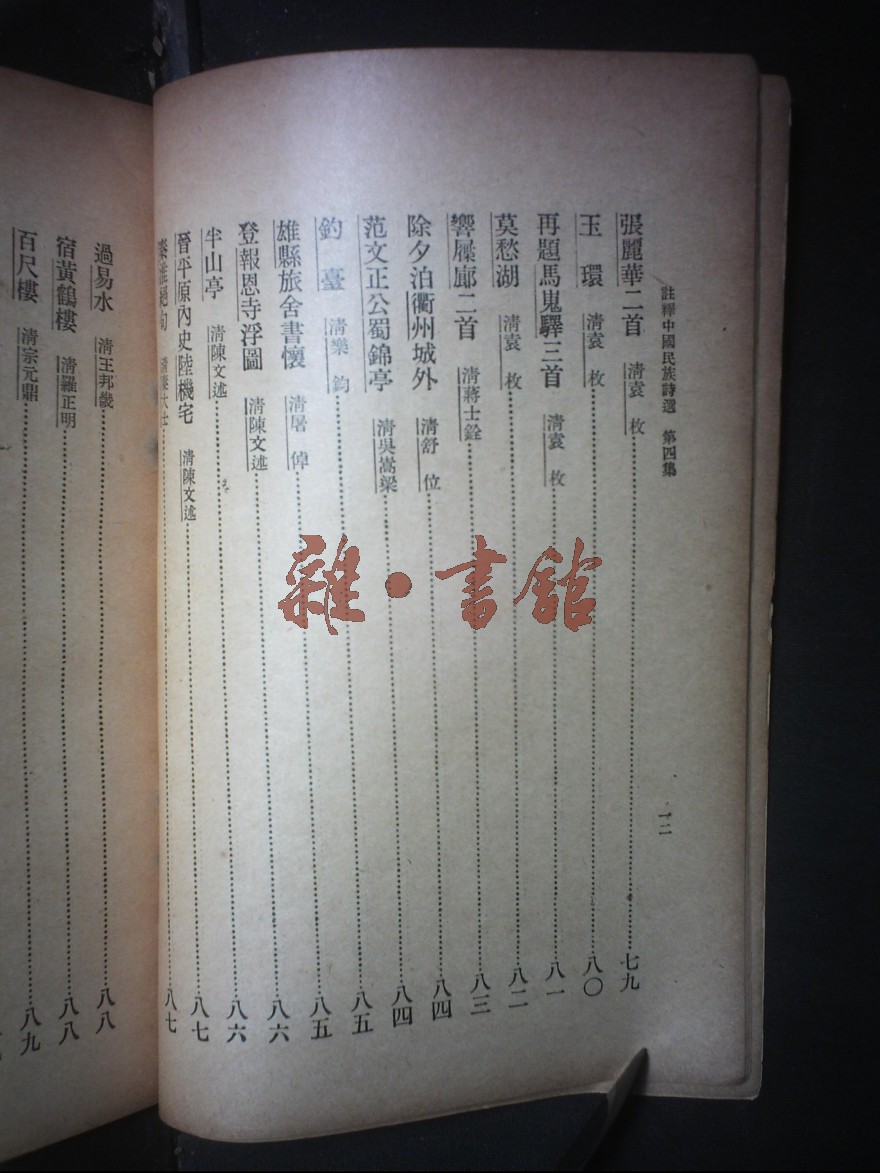 註釋中國民族詩選 第四集
一二
張麗華二首 清袁枚……七九
玉環 清袁枚……八〇
再題馬嵬驛三首 清袁枚……八一
莫愁湖 清袁枚……八二
響屧廊二首 清蔣士銓……八三
除夕泊衢州城外 清舒位……八四
范文正公蜀錦亭 清吳嵩梁……八四
釣臺 清樂鈞……八五
雄縣旅舍書懷 清屠倬……八五
登報恩寺浮圖 清陳文述……八六
半山亭 清陳文述……八六
晉平原內史陸機宅 清陳文述……八七
秦淮絕句 清 大士……八七
過易水 清王邦畿……八八
宿黃鶴樓 清羅正明……八八
百尺樓 清宗元鼎……八九
雜·書館